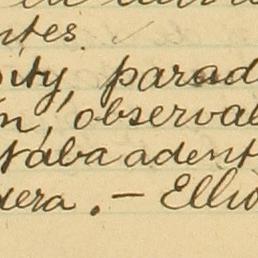 ntes.
ity, parad
n, observa
taba adent
era. — Ellio